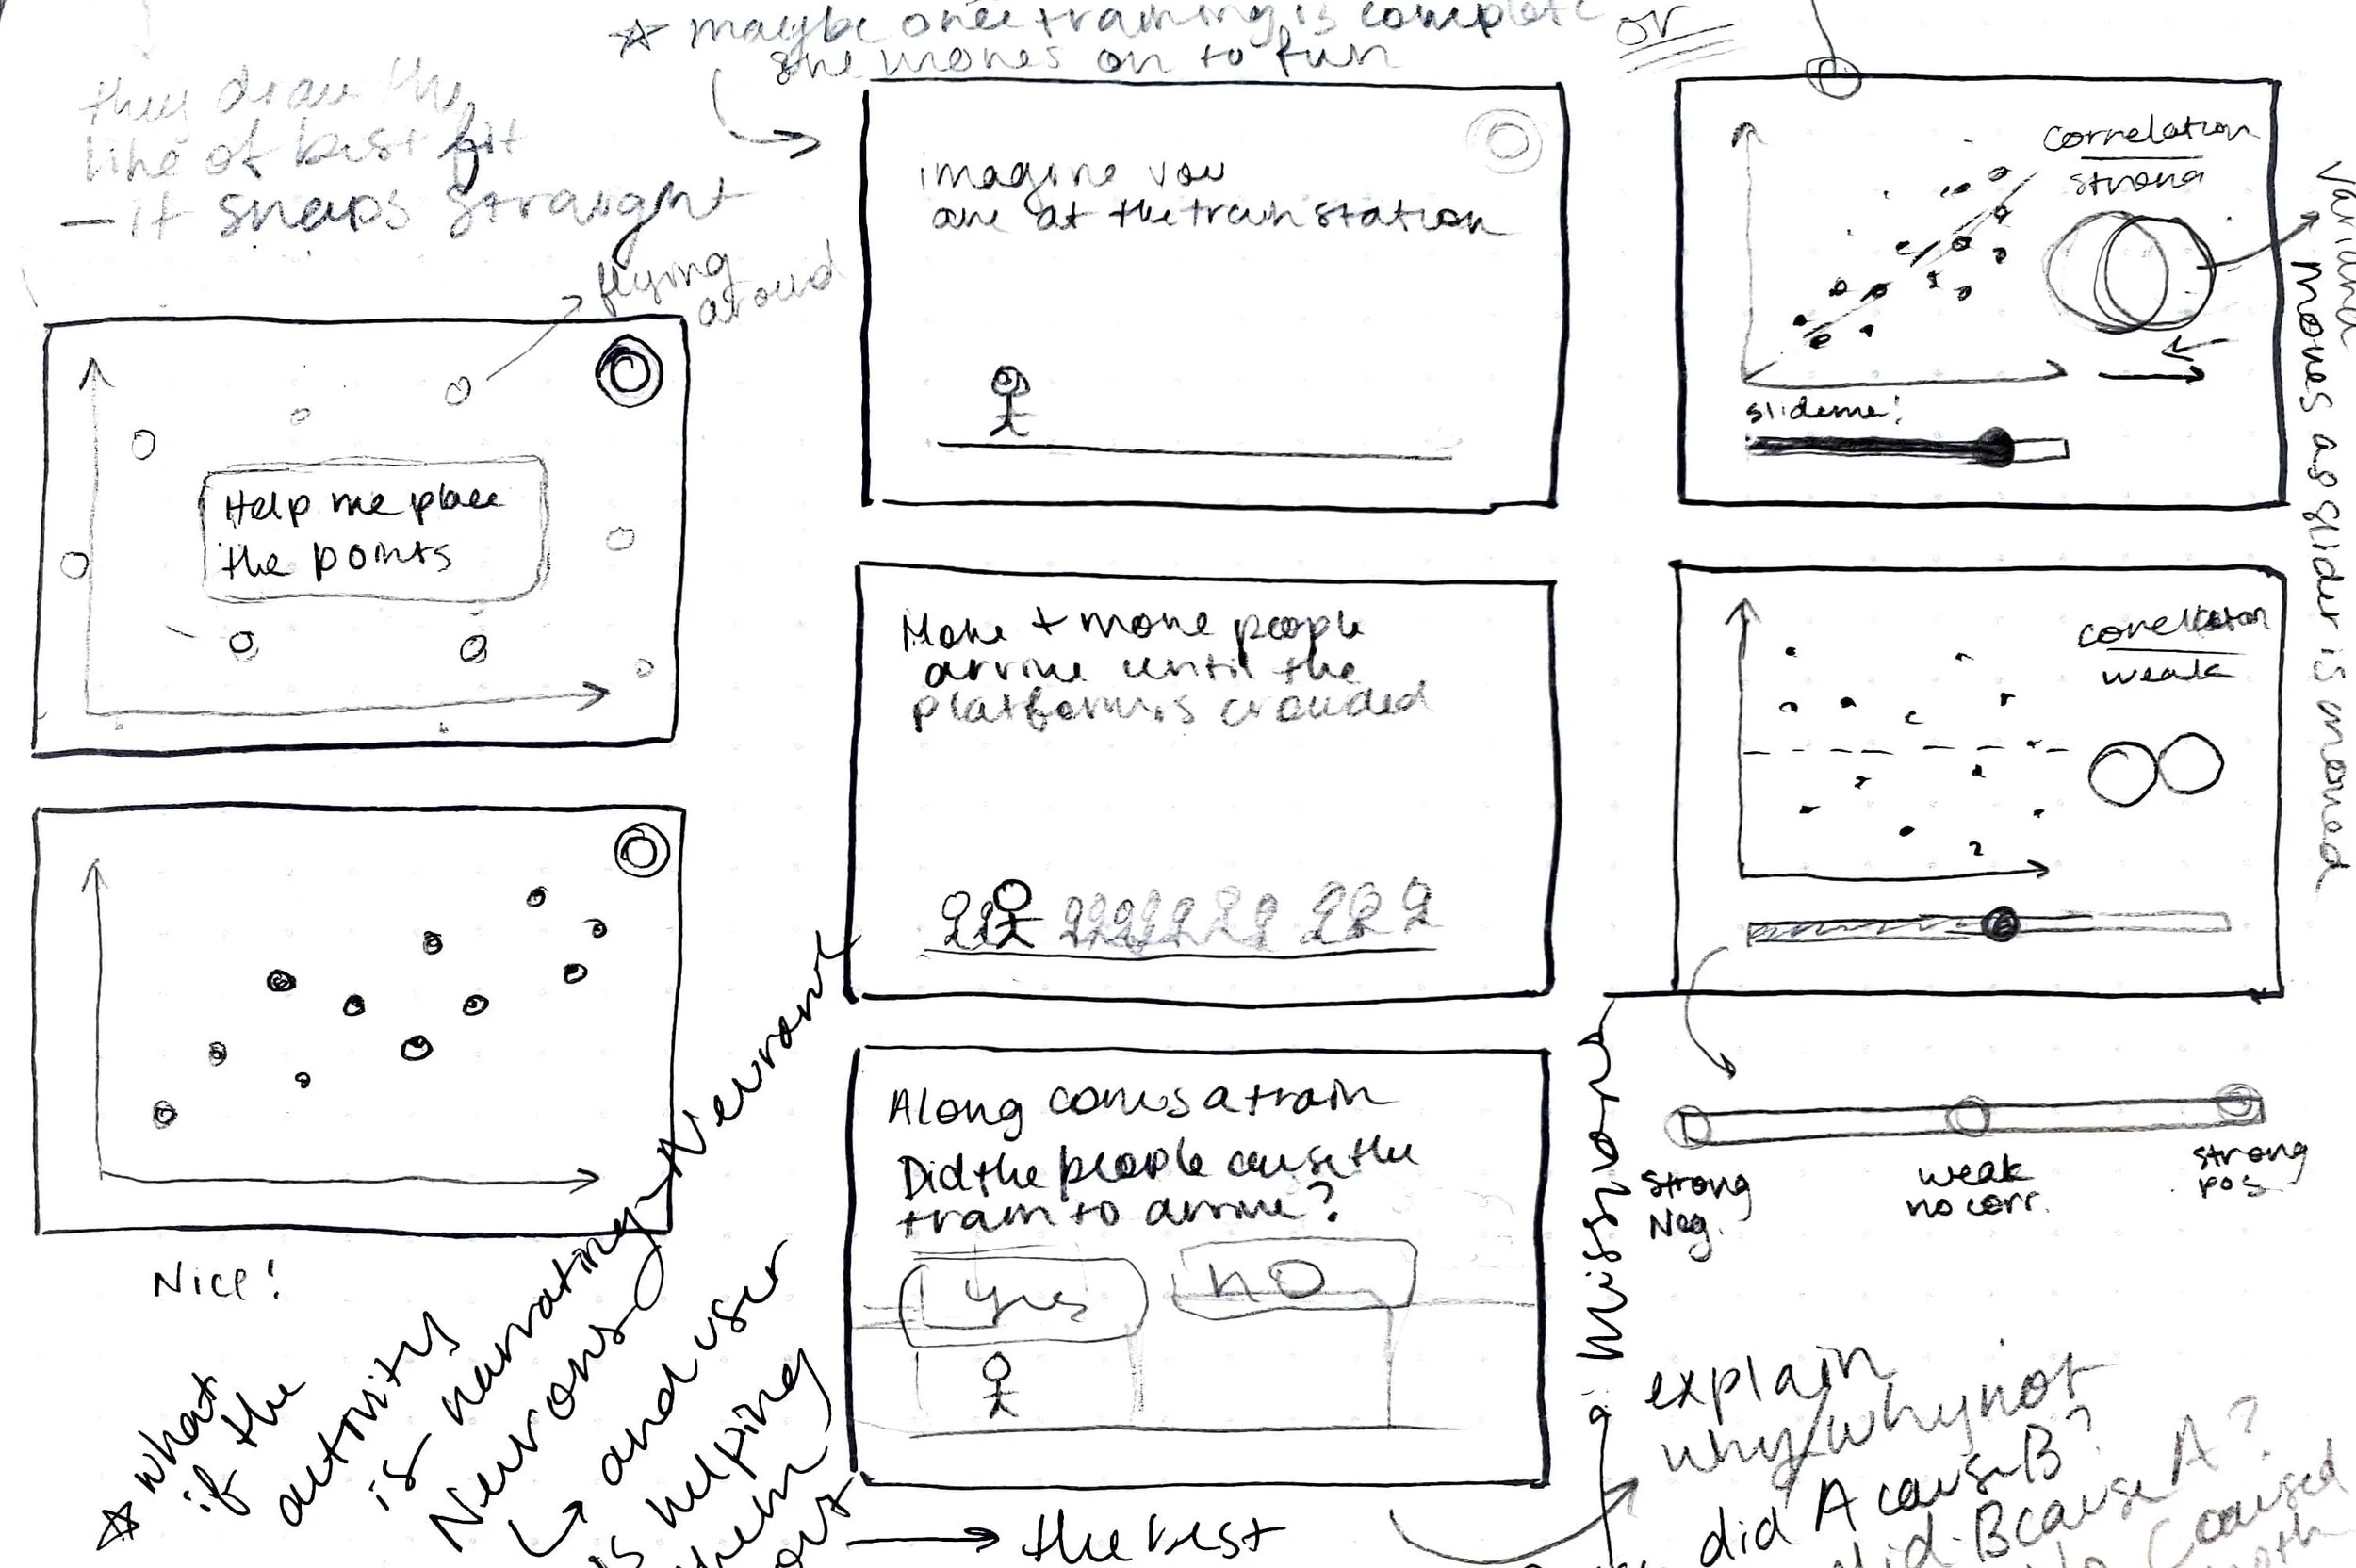 ☆ maybe once training is complete
she moves on to fun
or
they draw the
line of best fit
— it snaps straight
flying
around
Help me place
the points
Nice!
imagine you
are at the train station
More + more people
arrive until the
platform is crowded
Along comes a train
Did the people cause the
train to arrive?
yes
no
the rest
correlation
strong
slide me!
moves as slider is moved
correlation
weak
strong
Neg.
weak
no corr.
strong
pos
Missron
explain
why/why not
did A cause B?
did B cause A?
C caused
☆ what
if the
activities
is narrating Neurons
Neurons
and user
is helping
them